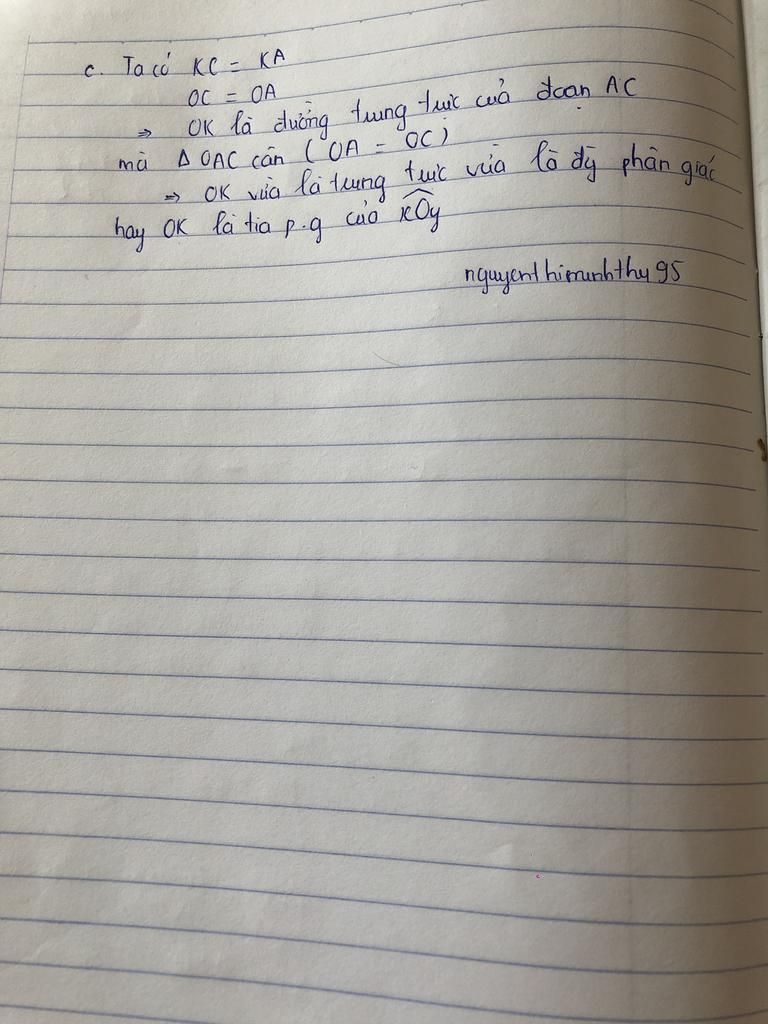 c. Ta có KC = KA
OC = OA
⇒ OK là đường trung trực của đoạn AC
mà Δ OAC cân ( OA = OC )
⇒ OK vừa là trung trực vừa là đg phân giác
hay OK là tia p.g của xOy
nguyenthiminhthy95